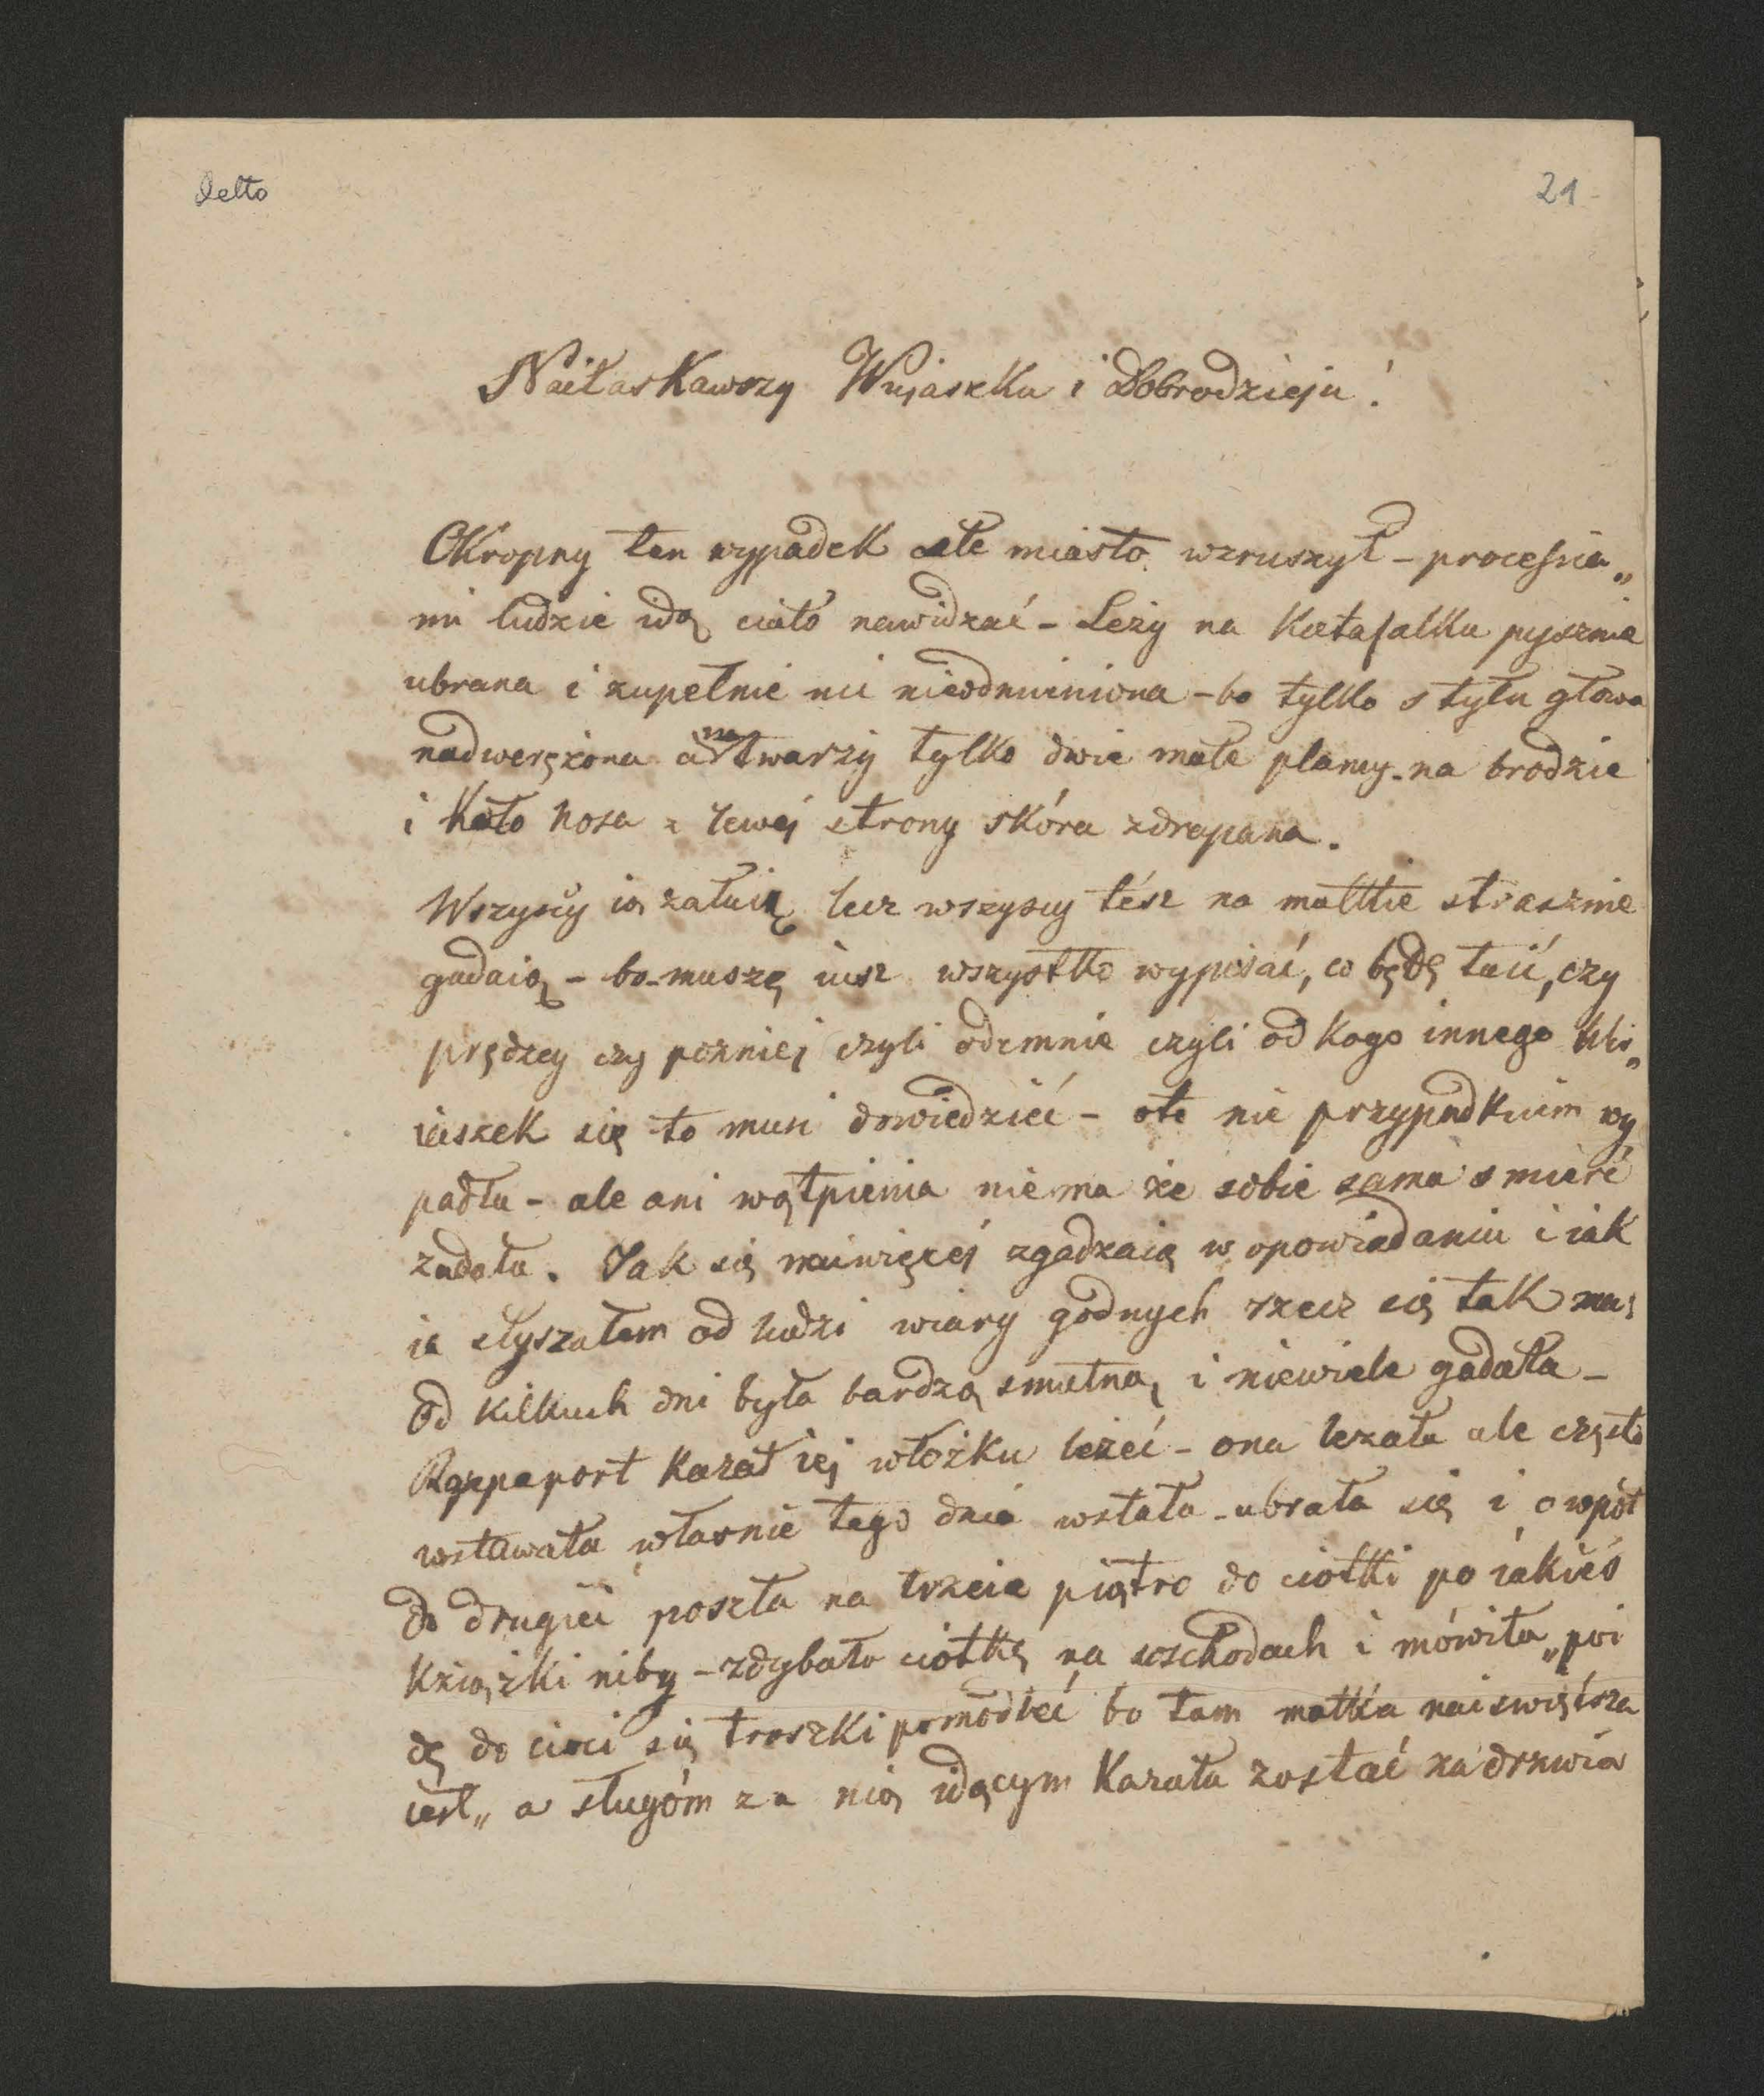 Detto
21
Naiłaskawszy Wujaszku i Dobrodzieju!
Okropny ten wypadek całe miasto wzruszył - procesia„
mi ludzie idą ciało nawidzać - Leży na katafalku pysznie
ubrana i zupełnie nic nieodmieniona - bo tylko s tyłu głowa
nadweręzona a na twarzy tylko dwie małe plamy - na brodzie
i koło nosa z lewej strony skóra zdrapana.
Wszyscy ią załuią lecz wszyscy tész na mattkie strasznie
gadaią - bo muszę iusz wszysttko wypisać, co będę taić, czy
prędzey czy pozniej czyli odemnie czyli od kogo innego Wu„
iaszek się to musi dowiedzieć - oto nie przypadkiem wy
padła - ale ani wątpienia niema że sobie sama smierć
zadała. Jak się naiwięcéj zgadzaią w opowiadaniu i iak
ia słyszałem od ludzi wiary godnych rzecz się tak ma;
Od kilkuch dni była bardzo smutną, i niewiele gadała -
Rappaport kazał iéj włożku leżeć - ona lezała ale często
wstawała własnie tego dnia wstała - ubrała się i o wpół
do drugiéi poszła na trzecie piątro do ciotki po iakieś
książki niby - zdybała ciotkę na wschodach i mówiła „pói
dę do cioci się troszki pomodleć bo tam mattka naiświętsza
iest„ a sługóm za nią idącym kazała zostać za drzwia